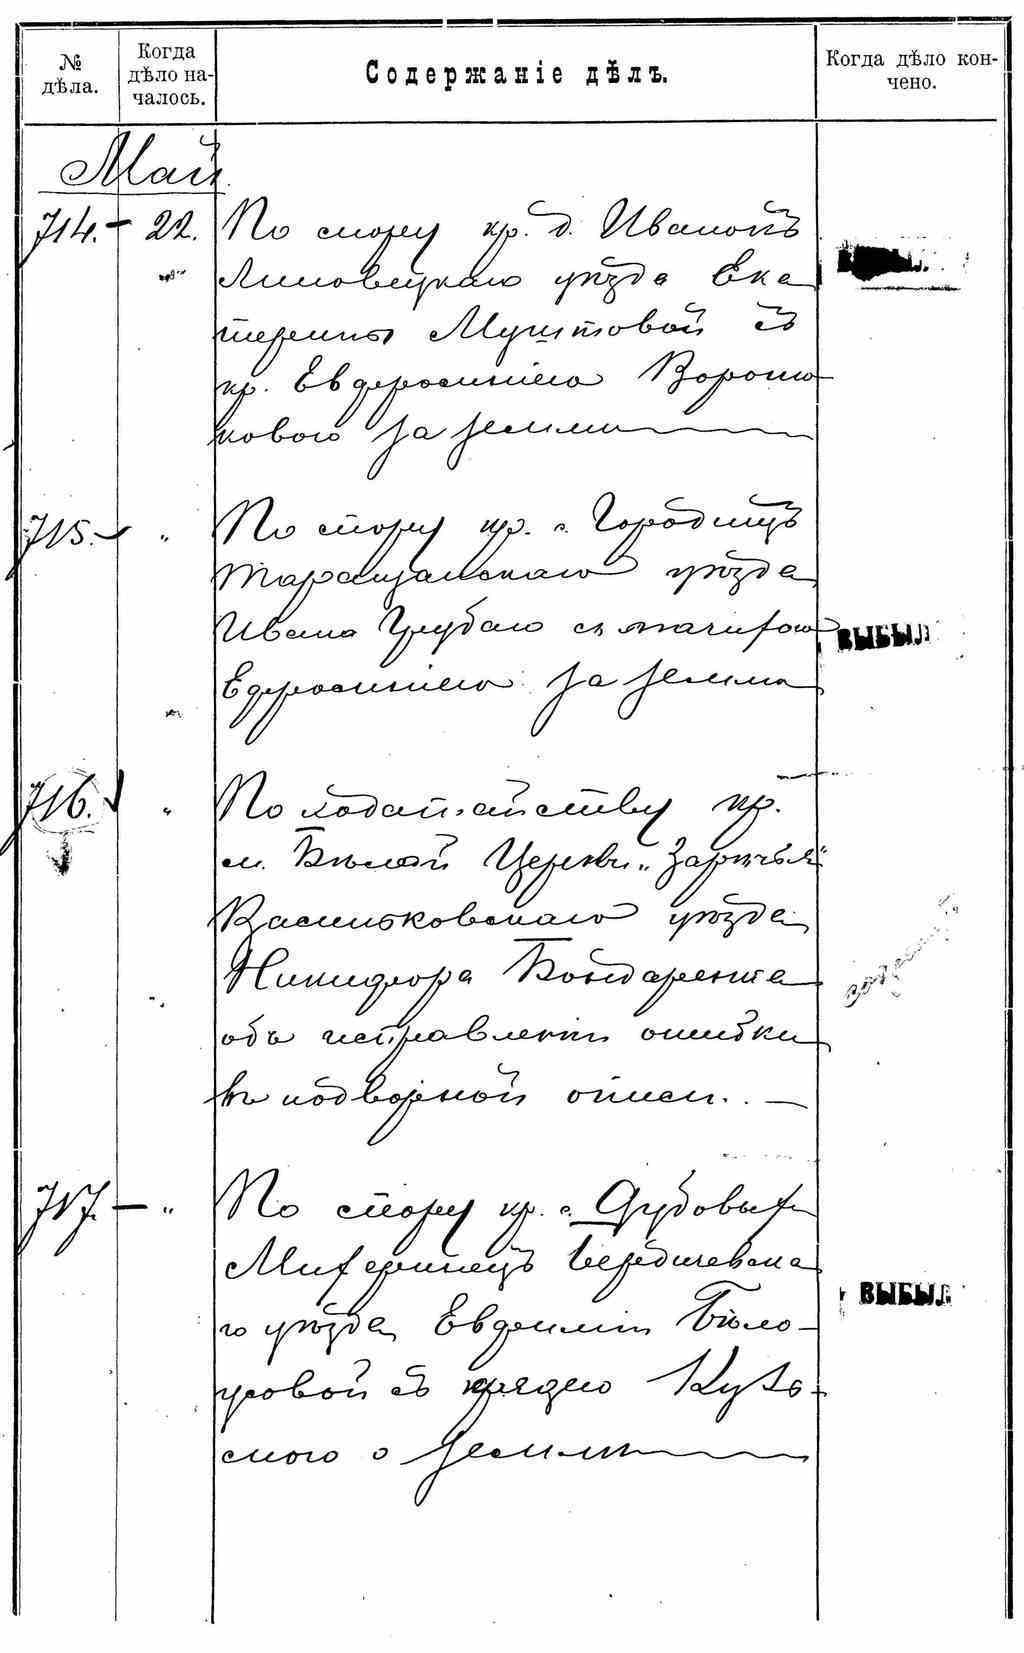 № дѣла.
Когда дѣло на-
чалось.
Содержаніе дѣлъ.
Когда дѣло кон-
чено.
Май
714. — 22. По спору кр. д. Иванокъ
Липовецкаго уѣзда Ека
терины Муштовой съ
кр. Евфросиніею Ворони
ковою за землю
715. — „ По спору кр. с. Городищъ
Таращанскаго уѣзда
Ивана Грубаго съ мачихою
Ефросиніею за землю
ВЫБЫЛ
716. „ По ходатайству кр.
м. Бѣлой Церкви „Зарѣчья"
Васильковскаго уѣзда
Никифора Бондаренка
объ исправленіи ошибки
въ подворной описи. —
717. — „ По спору кр. с. Дубовыхъ
Махаринецъ Бердичевска
го уѣзда Евфиміи Бѣло-
усовой съ дядею
о землѣ
ВЫБЫЛ